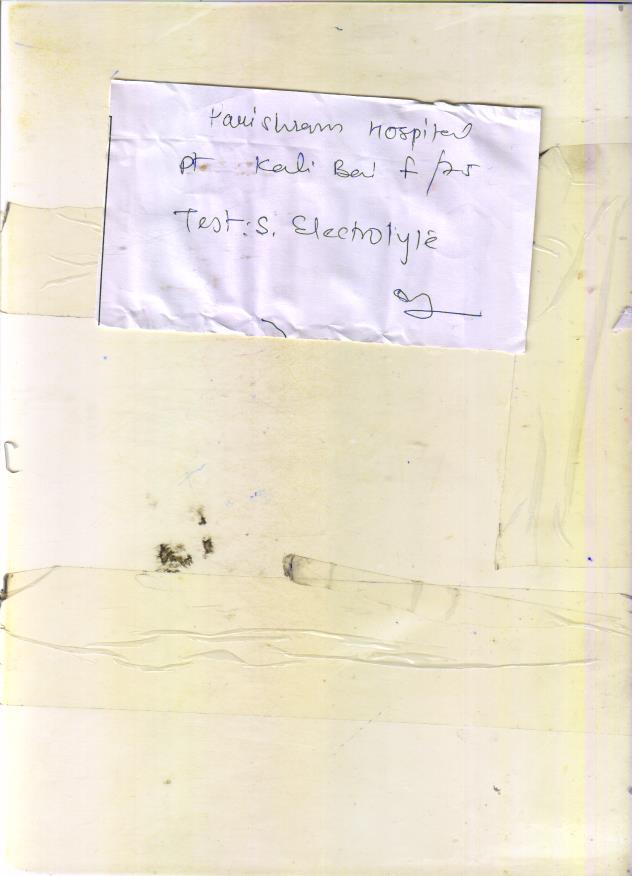 Parishram Hospital
pt Kali Bai f /75
Test: S. Electrolyte